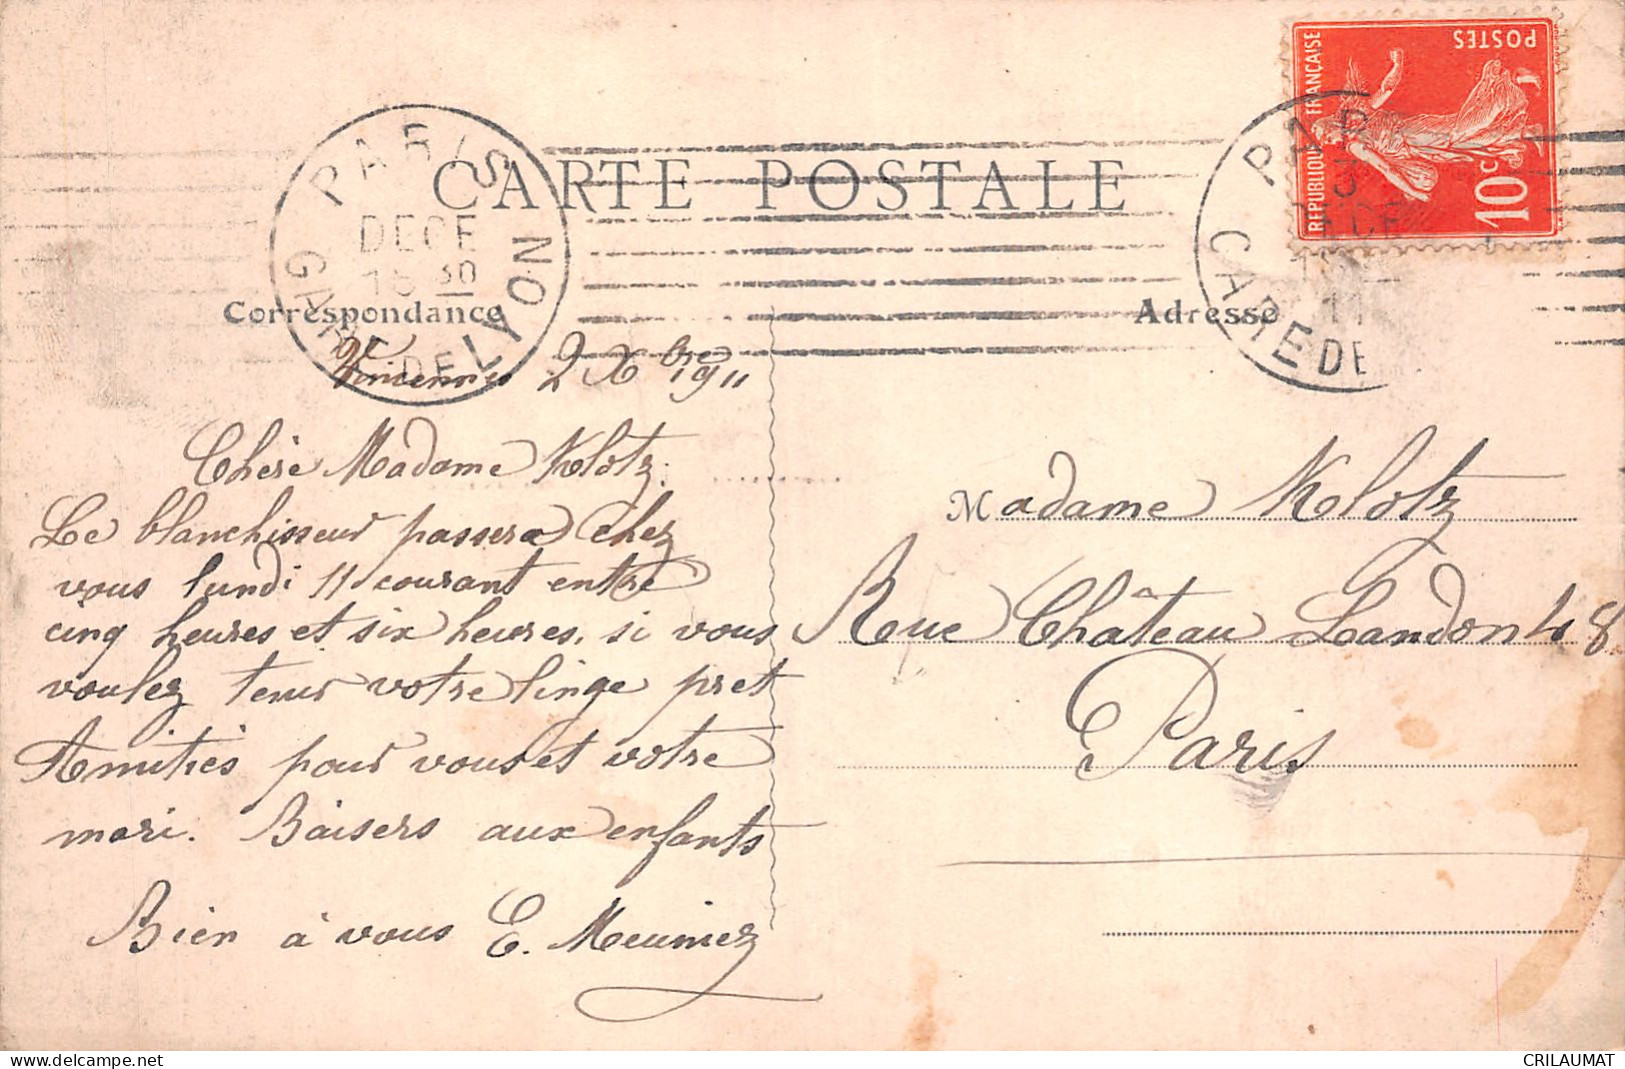 CARTE POSTALE
Correspondance
Adresse
PARIS
DECE
15 30
GARE DE LYON
PAR
3
DECE
11
GARE DE
RÉPUBLIQUE FRANÇAISE
POSTES
10c
Vincennes 2 Xbre 1911
Chère Madame Klotz.
Le blanchisseur passera chez
vous lundi 11 courant entre
cinq heures et six heures, si vous
voulez tenir votre linge pret
Amitiés pour vous et votre
mari. Baisers aux enfants
Bien à vous E. Meuniez
Madame Klotz
Rue Château Landon 48
Paris
www.delcampe.net
CRILAUMAT